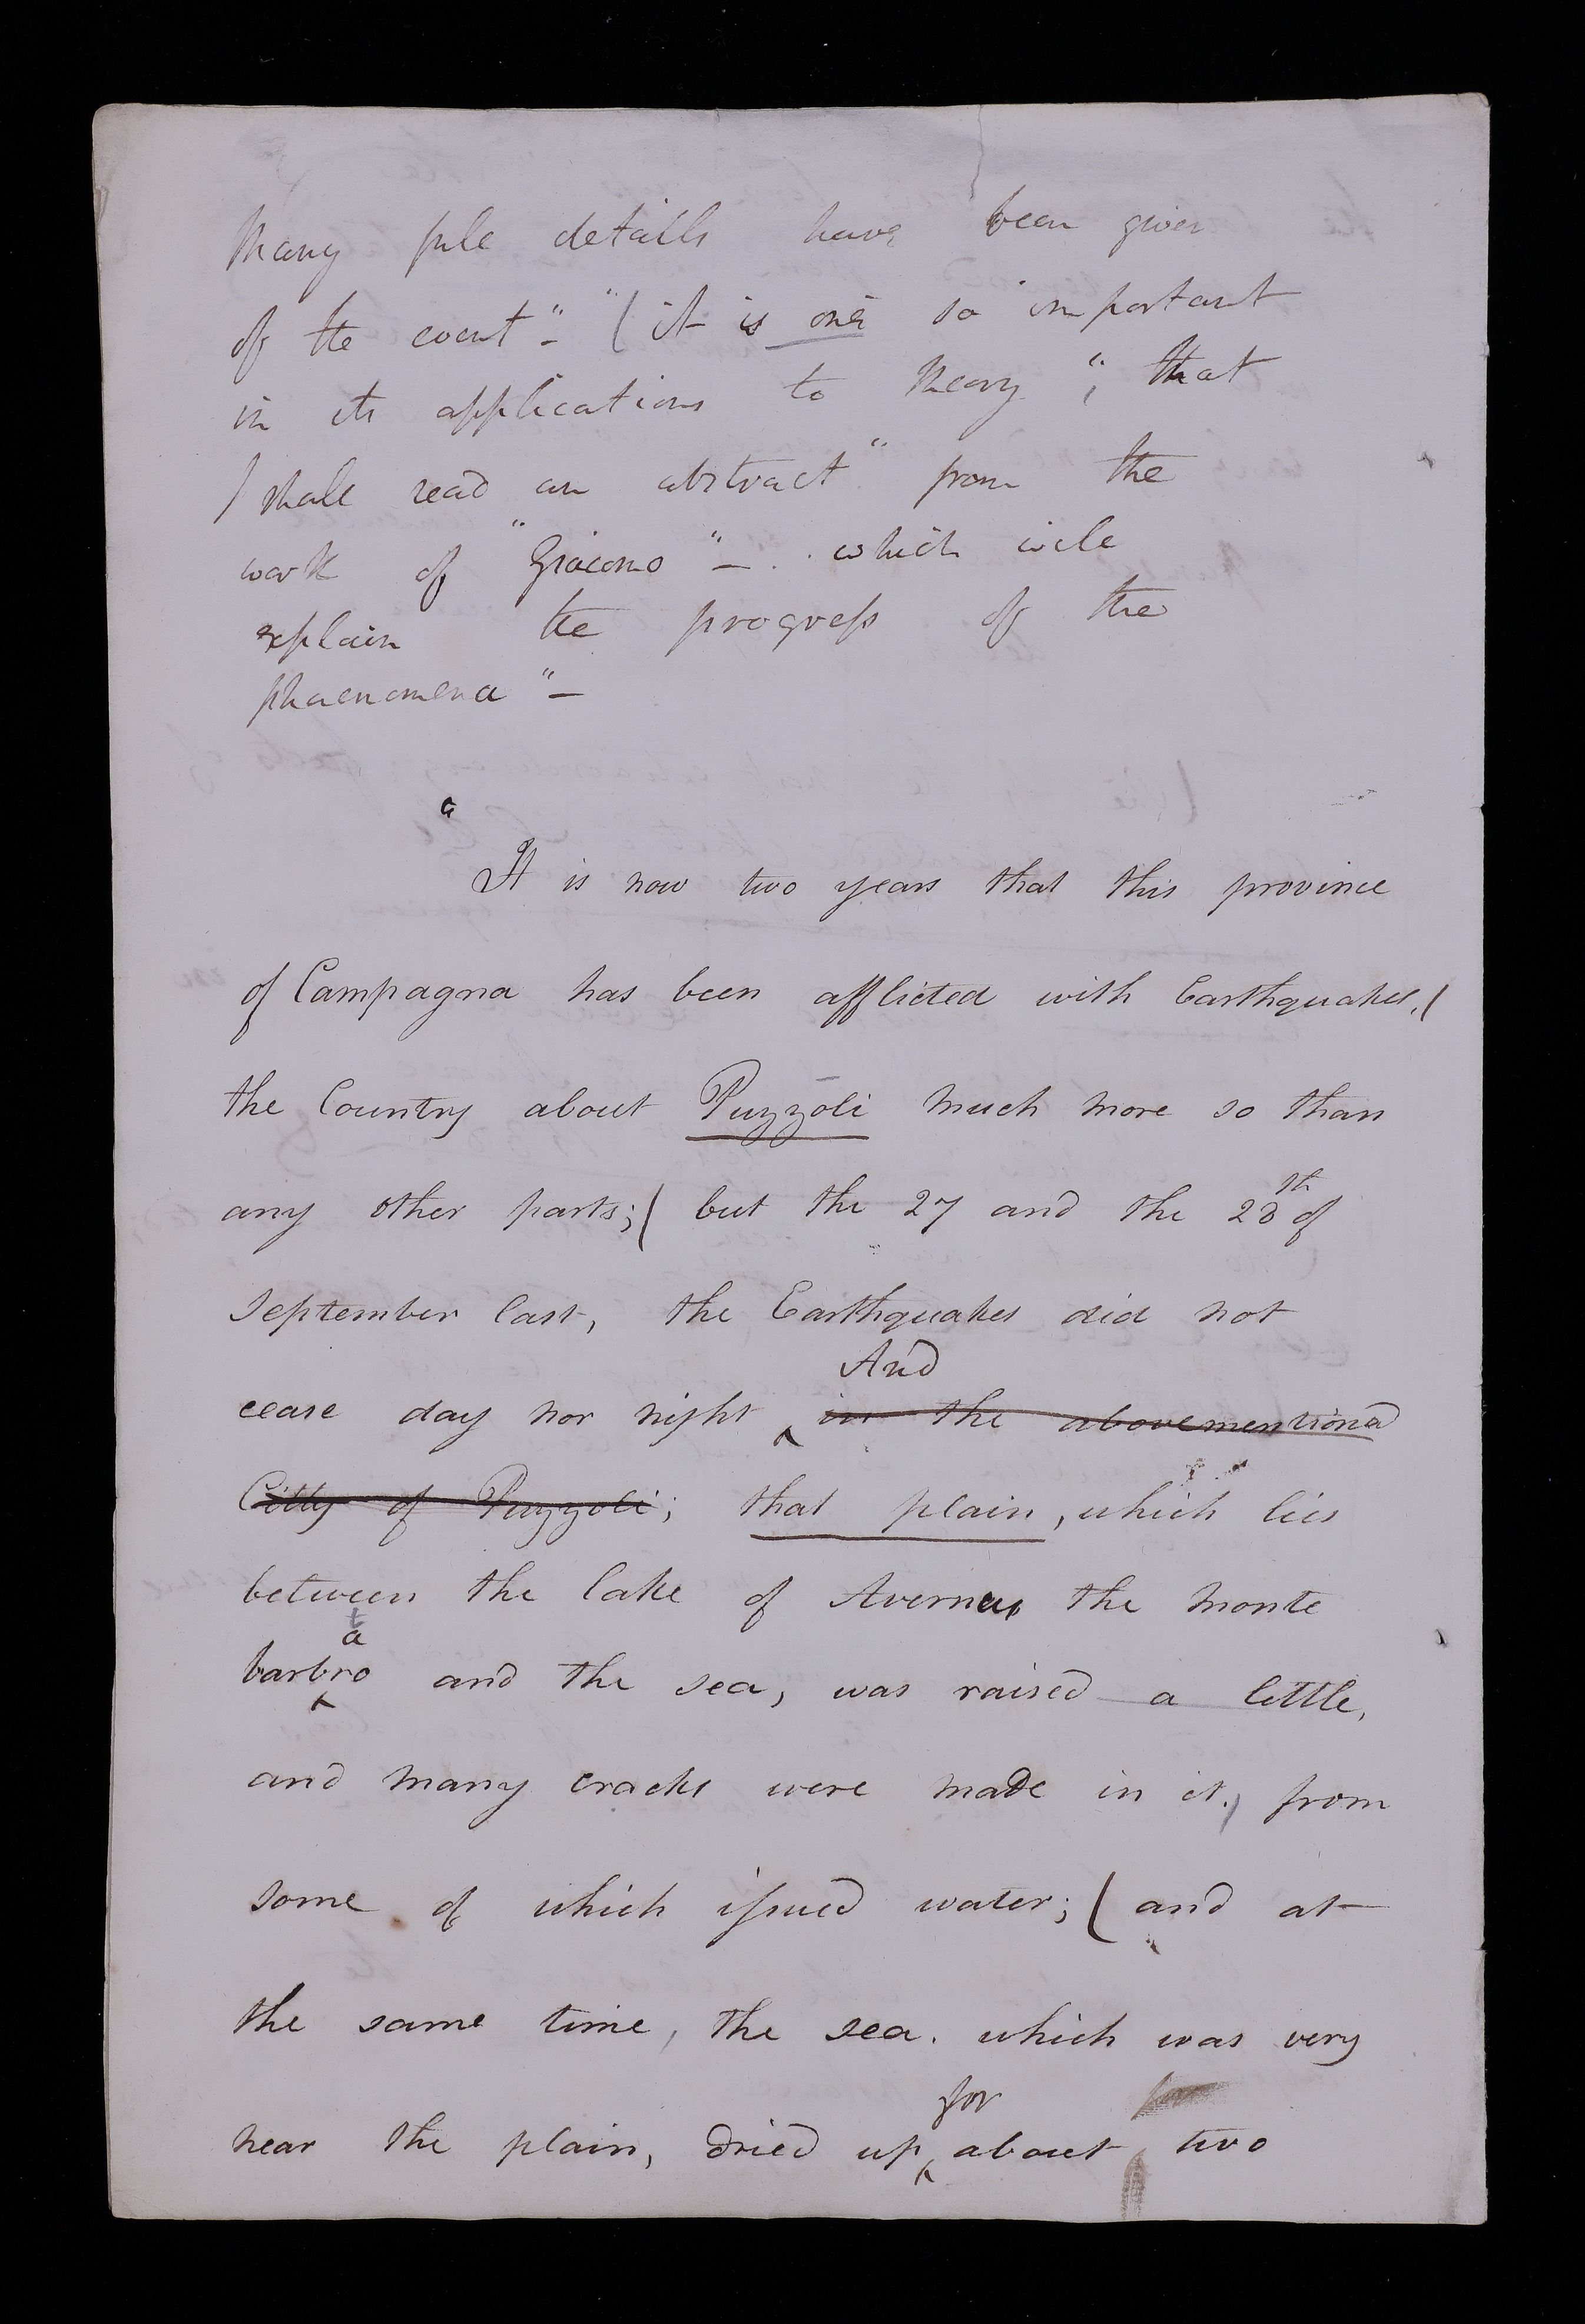 Many full details have been given
of the event"- "( it is one so important
in its applications to theory "; that
I shall read an abstract" from the
work of "Giacomo"-. which will
explain the progress of the
phaenomena"-
It is now two years that this province
of Campagna has been afflicted with Earthquakes,(
the Country about Puzzoli much more so than
any other parts;( but the 27 and the 28th of
September last, the Earthquakes did not
And
cease day nor night ^ in the abovementiond
Citty of Puzzoli; that plain, which lies
between the lake of Avernus the monte
a
barbro and the sea, was raised a little,
and many cracks were made in it, from
some of which issued water;( and at
the same time, the sea. which was very
for
near the plain, dried up ^ about two